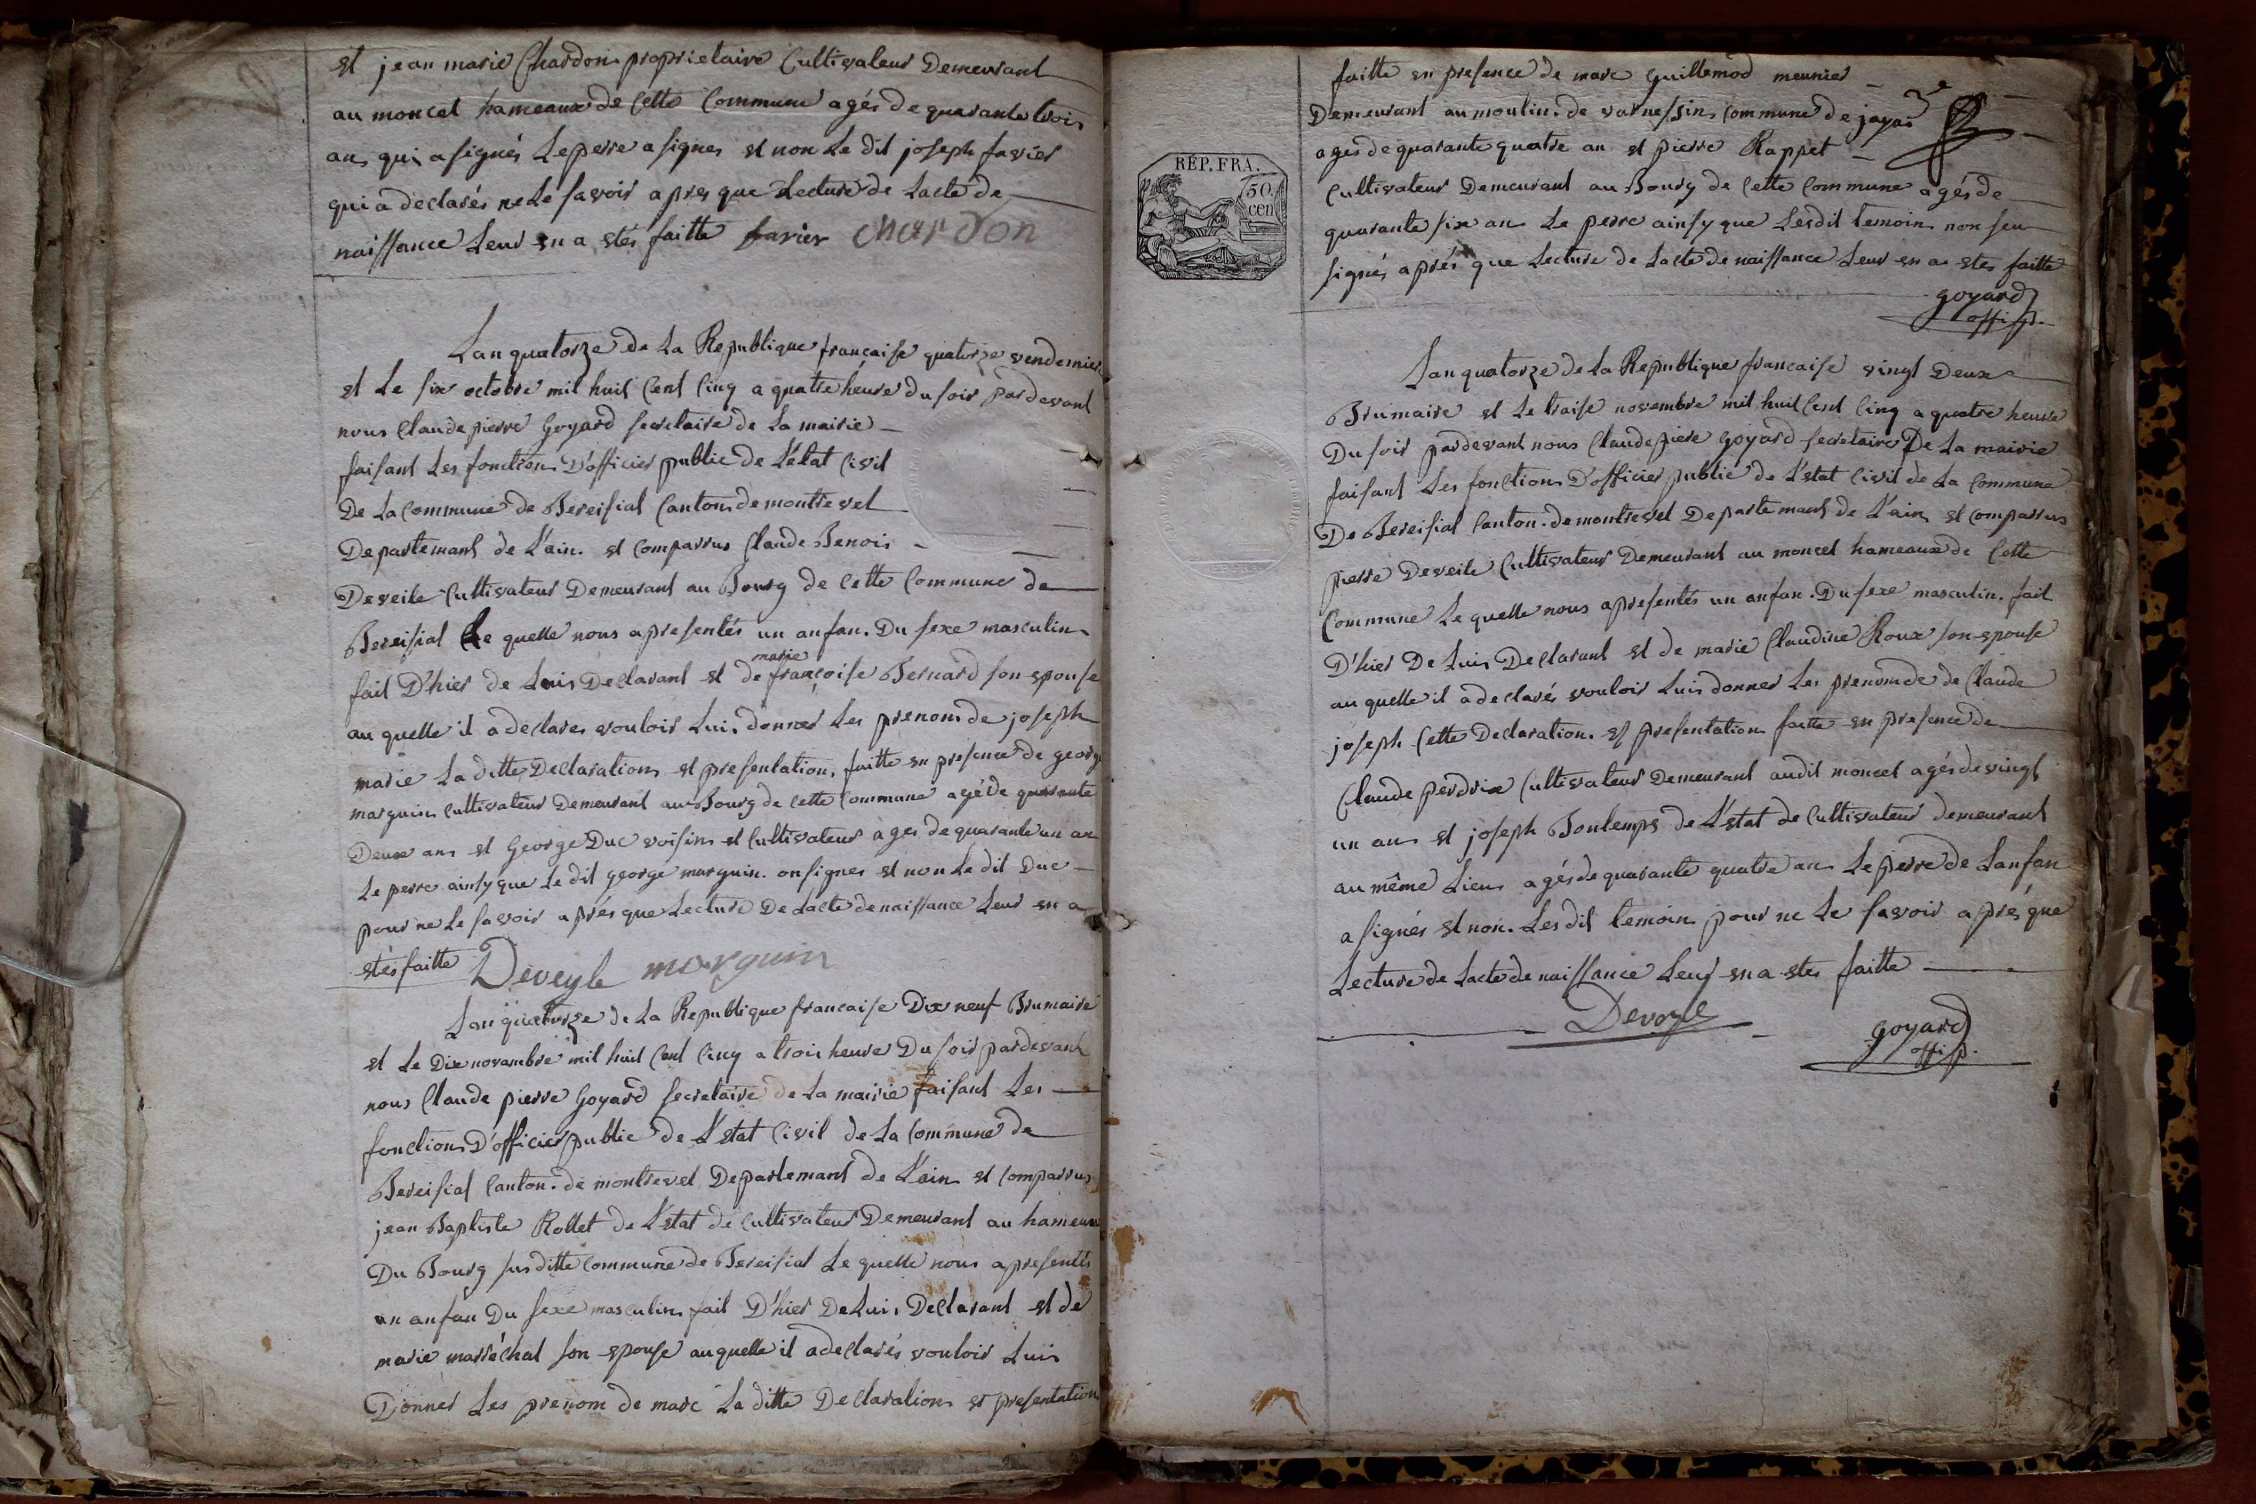 et jean marie Chardon proprietaire Cultivateur Demeurant
au moncet hameaux de Cette Commune agés de quarante trois
ans qui a signés Le perre a signes et non Le dit joseph favier
qui a declarés ne Le savoir apres que Lecture de Lacte de
naissance Leur en a etés faitte favier chardon
Lan quatorze de La Republique francaise quatorze vendemier
et Le six octobre mil huit Cent Cinq a quatre héure du soir pardevant
nous Claude pierre Goyard secretaire de La mairie
faisant Les fonction D'officier public de L'état Civil
De La Commune de Bereisiat Canton de montrevel
Departemant de L'ain et Comparrus Claude Benois
Deveile Cultivateur Demeurant au Bourg de Cette Commune de
Bereisiat Le quelle nous a presentés un anfan Du sexe masculin
marie
fait D'hier de Luis Declarant et de françoise Bernard son epouse
au quelle il a declares vouloir Lui donner Les prenom de joseph
marie La ditte Declaration et presentation faitte en presence de george
marguin Cultivateur Demeurant au Bourg de Cette Commune agé de quarante
Deux ans et George Duc voisin et Cultivateur ages de quarante un an
Le perre ainsy que Le dit george marguin on signes et non Le dit Duc
pour ne Le savoir aprés que Lecture De Lacte de naissance Leur en a
etés faitte Deveyle marguin
Lan quatorze de La Republique francaise Dix neuf Brumaire
et Le Dix novambre mil huit Cent Cinq a trois heure Du soir pardevant
nous Claude pierre Goyard secretaire de La mairie faisant Les
fonction D'officier public de L'état Civil de La Commune de
Bereisiat Canton de montrevel Departemant de L'ain et Comparrus
jean Baptiste Rollet de L'état de Cultivateur Demeurant au hameau
Du Bourg sus ditte Commune de Bereisiat Le quelle nous a presentés
un anfan Du sexe masculin fait D'hier De Luis Declarant et de
marie marréchal son epouse au quelle il a declarés vouloir Luis
Donner Les prenom de marc La ditte Declaration et presentation
RÉP. FRA.
50
cen
faitte en presence de marc Guillemod meunier
Demeurant au moulin de varnessin Commune de jayas
ages de quarante quatre an et pierre Rappet
Cultivateur Demeurant au Bourg de Cette Commune agés de
quarante six an Le perre ainsy que Lesdit temoin non seu
signés aprés que Lecture de Lacte de naissance Leur en a etes faitte
goyard
offi p.
Lan quatorze de La Republique francaise vingt Deux
Brumaire et Le traise novembre mil huit Cent Cinq a quatre heure
Du soir pardevant nous Claude piere Goyard secretaire De La mairie
faisant Les fonction D'officier public de L'état Civil de La Commune
De Bereisiat Canton de montrevel Departemant de L'ain et Comparrus
pierre Deveile Cultivateur Demeurant au moncet hameaux de Cette
Commune Le quelle nous a presentés un anfan Du sexe masculin fait
D'hier De Luis Declarant et de marie Claudine Roux son epouse
au quelle il a declarés vouloir Luis donner Les prenom de de Claude
joseph Cette Declaration et presentation faitte en presence de
Claude perdrix Cultivateur Demeurant audit moncet agés de vingt
un ans et joseph Bontemps de L'état de Cultivateur demeurant
au même Lieu agés de quarante quatre an Le perre de Lanfan
a signés et non Les dit temoin pour ne Le savoir aprés que
Lecture de Lacte de naissance Leur en a etes faitte
Deveyle
goyard
offi p.